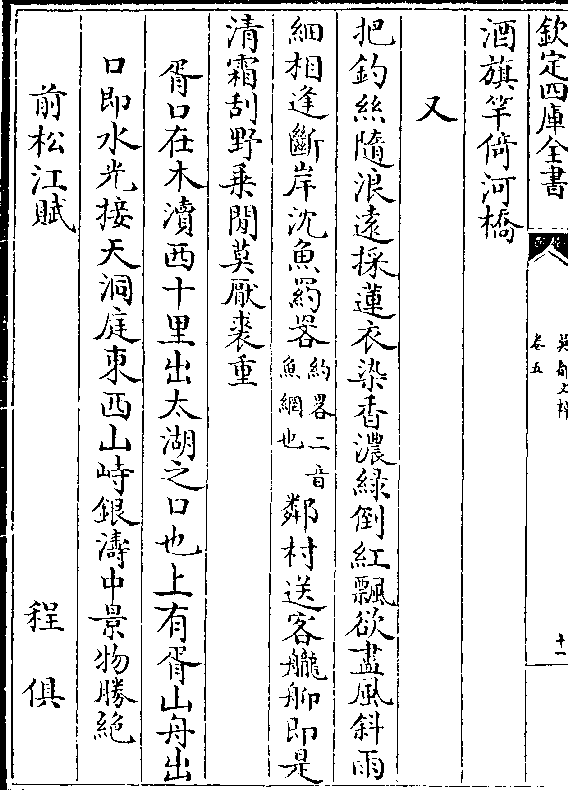 欽定四庫全書
吳都文粹
卷五
十一
酒旗竿倚河橋
又
把釣絲隨浪遠採蓮衣染香濃綠倒紅飄欲盡風斜雨
細相逢斷岸沈魚䈞畧約畧二音魚網也鄰村送客艬舟即是
清霜刮野乗閒莫厭裘重
胥口在木瀆西十里出太湖之口也上有胥山舟出
口即水光接天洞庭東西山峙銀濤中景物勝絶
前松江賦
程俱